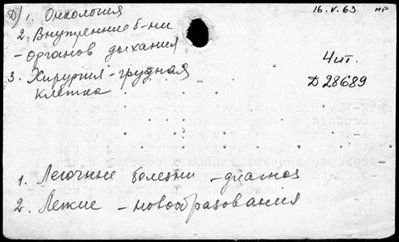 Д) 1. Онкология
16.V.63 НР
2. Внутренние б-ни
- органов дыхания
3. Хирургия - грудная
клетка
4 ит.
Д 28689
1. Легочные болезни - диагноз
2. Легкие - новообразования